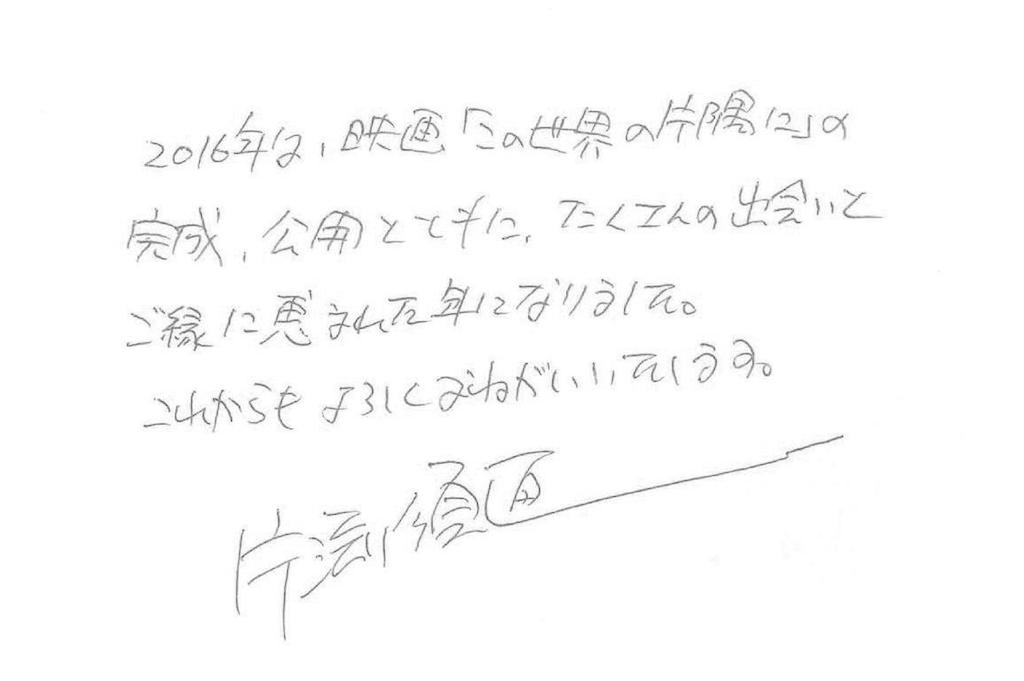 2016年は、映画「この世界の片隅に」の
完成、公開とともに、たくさんの出会いと
ご縁に恵まれた年になりました。
これからもよろしくおねがいいたします。
片渕須直